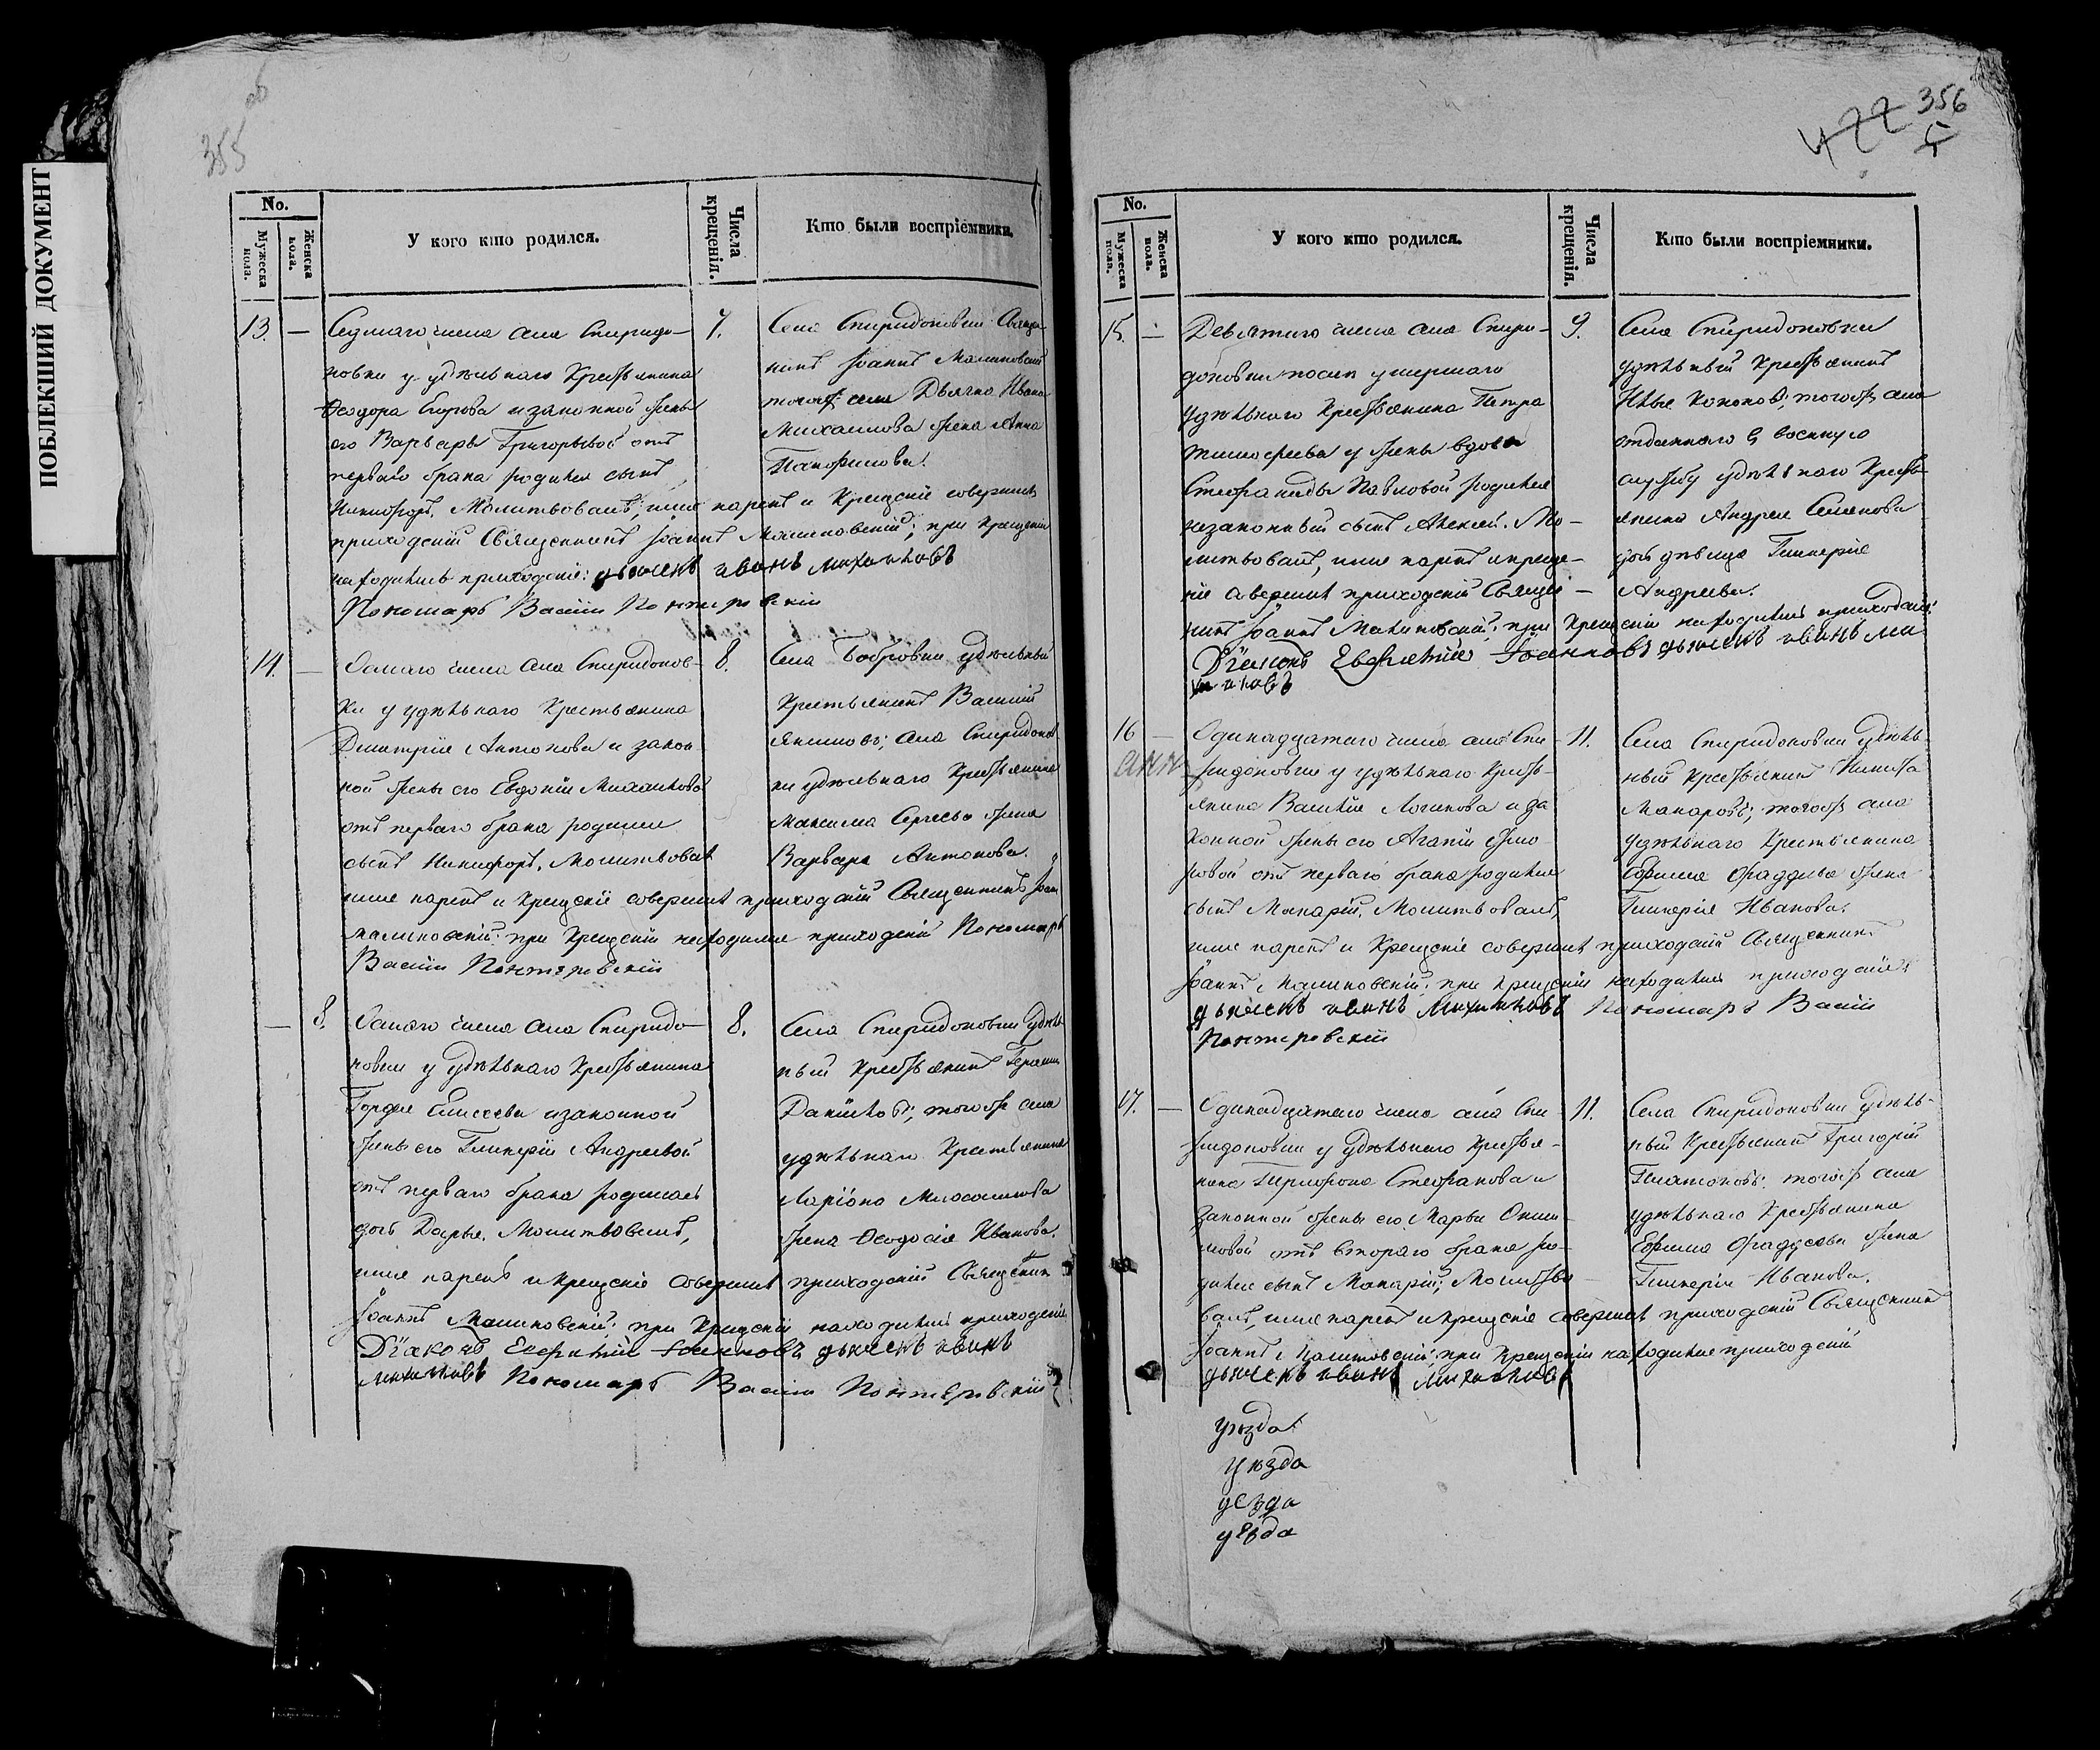 ПОБЛЕКШИЙ ДОКУМЕНТ
355 об
No.
Мужеска пола.
Женска пола.
У кого кто родился.
Числа крещенія.
Кто были воспріемники.
13. — Седмаго числа села Спиридо-
новки у удѣльнаго Крестьянина
Ѳеодора Егорова и законной жены
его Варвары Григорьевой отъ
перваго брака родился сынъ
Никифоръ. Молитвовалъ, имя нарекъ и Крещеніе совершилъ
приходскій Священникъ Іоаннъ Малиновскій; при Крещеніи
находились приходскіе: дьячекъ иванъ михаиловъ
Пономарь Василій Понтеровскій
7.
Села Спиридоновки Священ-
никъ Іоаннъ Малиновскій
тогожъ села Дьячка Ивана
Михаилова жена Анна
Панфилова.
14. — Осмаго числа села Спиридонов-
ки у удѣльнаго Крестьянина
Димитрія Антонова и закон-
ной жены его Евдокіи Михаиловой
отъ перваго брака родился
сынъ Никифоръ. Молитвовалъ
имя нарекъ и Крещеніе совершилъ приходскій Священникъ Іоан
малиновскій; при Крещеніи находился приходскій Пономарь
Василій Понтеровскій
8.
Села Бобровки удѣльный
Крестьянинъ Василій
Акимовъ; села Спиридонов-
ки удѣльнаго Крестьянина
Максима Сергеева жена
Варвара Антонова.
— 8. Осмаго числа села Спиридо-
новки у удѣльнаго Крестьянина
Гордея Елисеева и законной
жены его Гликеріи Андреевой
отъ перваго брака родилась
дочь Дарья. Молитвовалъ,
имя нарекъ и Крещеніе совершилъ приходскій Священник
Іоаннъ Малиновскій; при Крещеніи находились приходскіе
Діаконъ Іоанновъ дьячекъ иванъ
михаиловъ Пономарь Василій Понтеровскій
8.
Села Спиридоновки удѣль-
ный Крестьянинъ Герасим
Даниловъ; тогожъ села
удѣльнаго Крестьянина
Ларіона жена Ѳеодосія Иванова.
422 356
No.
Мужеска пола.
Женска пола.
У кого кто родился.
Числа крещенія.
Кто были воспріемники.
15. — Девятаго числа села Спири-
доновки послѣ умершаго
удѣльнаго Крестьянина Петра
Тимофеева у жены вдовы
Стефаниды Павловой родился
незаконный сынъ Алексей. Мо-
литвовалъ, имя нарекъ и креще-
ніе совершилъ приходскій Священ-
никъ Іоаннъ Малиновскій; при Крещеніи находились приходскіе:
Діаконъ Іоанновъ дьячекъ иванъ ми
хаиловъ
9.
Села Спиридоновки
удѣльный Крестьянинъ
Илья Кононовъ; тогожъ села
отданнаго въ военную
службу удѣльнаго Кресть-
янина Андрея Семенова
дочь дѣвица Гликерія
Андреева.
16 — Одинадцатаго числа села Спи-
ридоновки у удѣльнаго Кресть-
янина Василія Логинова и за-
конной жены его Агапіи
отъ перваго брака родился
сынъ Макарій. Молитвовалъ,
имя нарекъ и Крещеніе совершилъ приходскій Священникъ
Іоаннъ Малиновскій; при Крещеніи находились приходскіе
дьячекъ иванъ михаиловъ Пономарь Василій
Понтеровскій
11.
Села Спиридоновки удѣль-
ный Крестьянинъ Никита
Макаровъ; тогожъ села
удѣльнаго Крестьянина
Ефима Фаддеева жена
Гликерія Иванова.
17. — Одинадцатаго числа села Спи-
ридоновки у удѣльнаго Крестья-
нина Стефанова и
законной жены его Марьи
отъ втораго брака ро-
дился сынъ Макарій; Молитво-
валъ, имя нарекъ и крещеніе совершилъ приходскій Священникъ
Іоаннъ Малиновскій; при Крещеніи находился приходскій
дьячекъ иванъ михаиловъ
11.
Села Спиридоновки удѣль-
ный Крестьянинъ Григорій
Платоновъ; тогожъ села
удѣльнаго Крестьянина
Ефима Фаддеева жена
Гликерія Иванова.
уѣзда
уѣзда
уезда
уезда